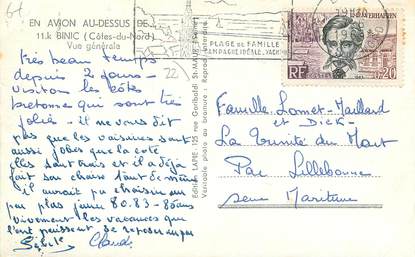 EN AVION AU-DESSUS DE...
11.k BINIC (Côtes-du-Nord)
Vue générale
très beau temps
depuis 2 jours -
visitons les côtes
bretonne qui sont très
jolies - il me vous dit
pas que les voisines sont
aussi jolies que la cote
elles sont trais et il a déjà
fait son choise tant de même
il aurait pu choisir un
peu plus jeune 80.83 - 85 ans
vivement les vacances que
l'ont puissent se reposer un peu
Claude
Edition LAPIE - 125 rue Garibaldi St-MAUR (Seine)
Véritable photo au bromure - Reprod. interdite
PLAGE DE FAMILLE
CAMPAGNE IDÉALE, YACHTING
VERHAEREN
RF
0,20
Famille Lomet-Maillard
et Dick -
La Trinité du Mont
Par Lillebonne
Seine Maritime